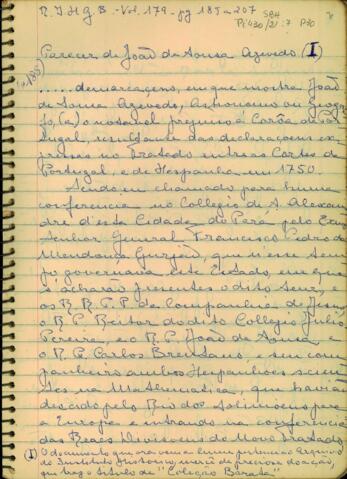 R. I. H. G. B. - Vol. 179 - pg 185 a 207
Parecer de João de Sousa Azevedo (I)
(p. 185)
..... demarcaçoens, em que mostra João
de Sousa Azevedo, Astronomo ou Geogra-
fo, (a) o notavel prejuizo á Corôa de Por-
tugal, resultante das declaraçoens ex-
pressas no Tratado entre as Cortes de
Portugal, e de Hespanha em 1750.
Sendo eu chamado para huma
conferencia no Collegio de S. Alexan-
dre d'esta Cidade do Pará pelo Exmo
Senhor General Francisco Pedro de
Mendonça Gurjão, que n'esse tem-
po governava este Estado, em que
se acharão presentes o dito Snr., e
os R. R. P. P. da Companhia de Jesus,
o R. P. Reitor do dito Collegio Julio
Pereira, e o R. P. João de Sousa e
o R. P. Carlos Brentano, e seu com-
panheiro ambos Hespanhoes scien-
tes na Mathematica, que havião
descido pelo Rio dos Solimões para
a Europa e entrando na conferencia
das Reaes Divisoens do Novo Tratado
(I) O documento que ora vem a lume pertence ao Arquivo
do Instituto Historico, mercê de preciosa doação,
que traz o titulo de "Coleção Barata"